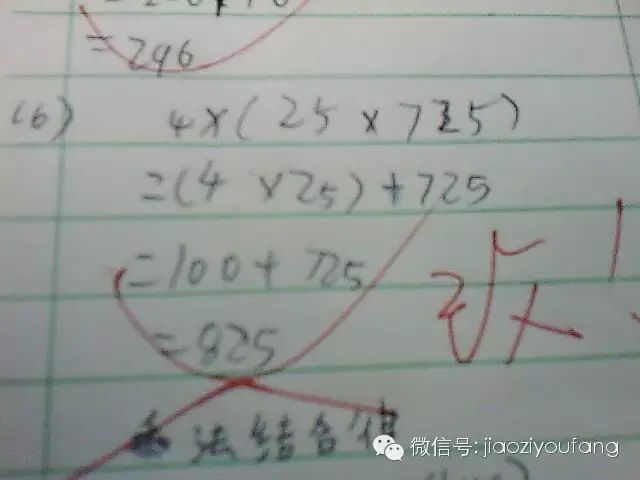 =296
(6) 4×(25×725)
=(4×25)+725
=100+725
=825
法结合律
微信号: jiaoziyoufang